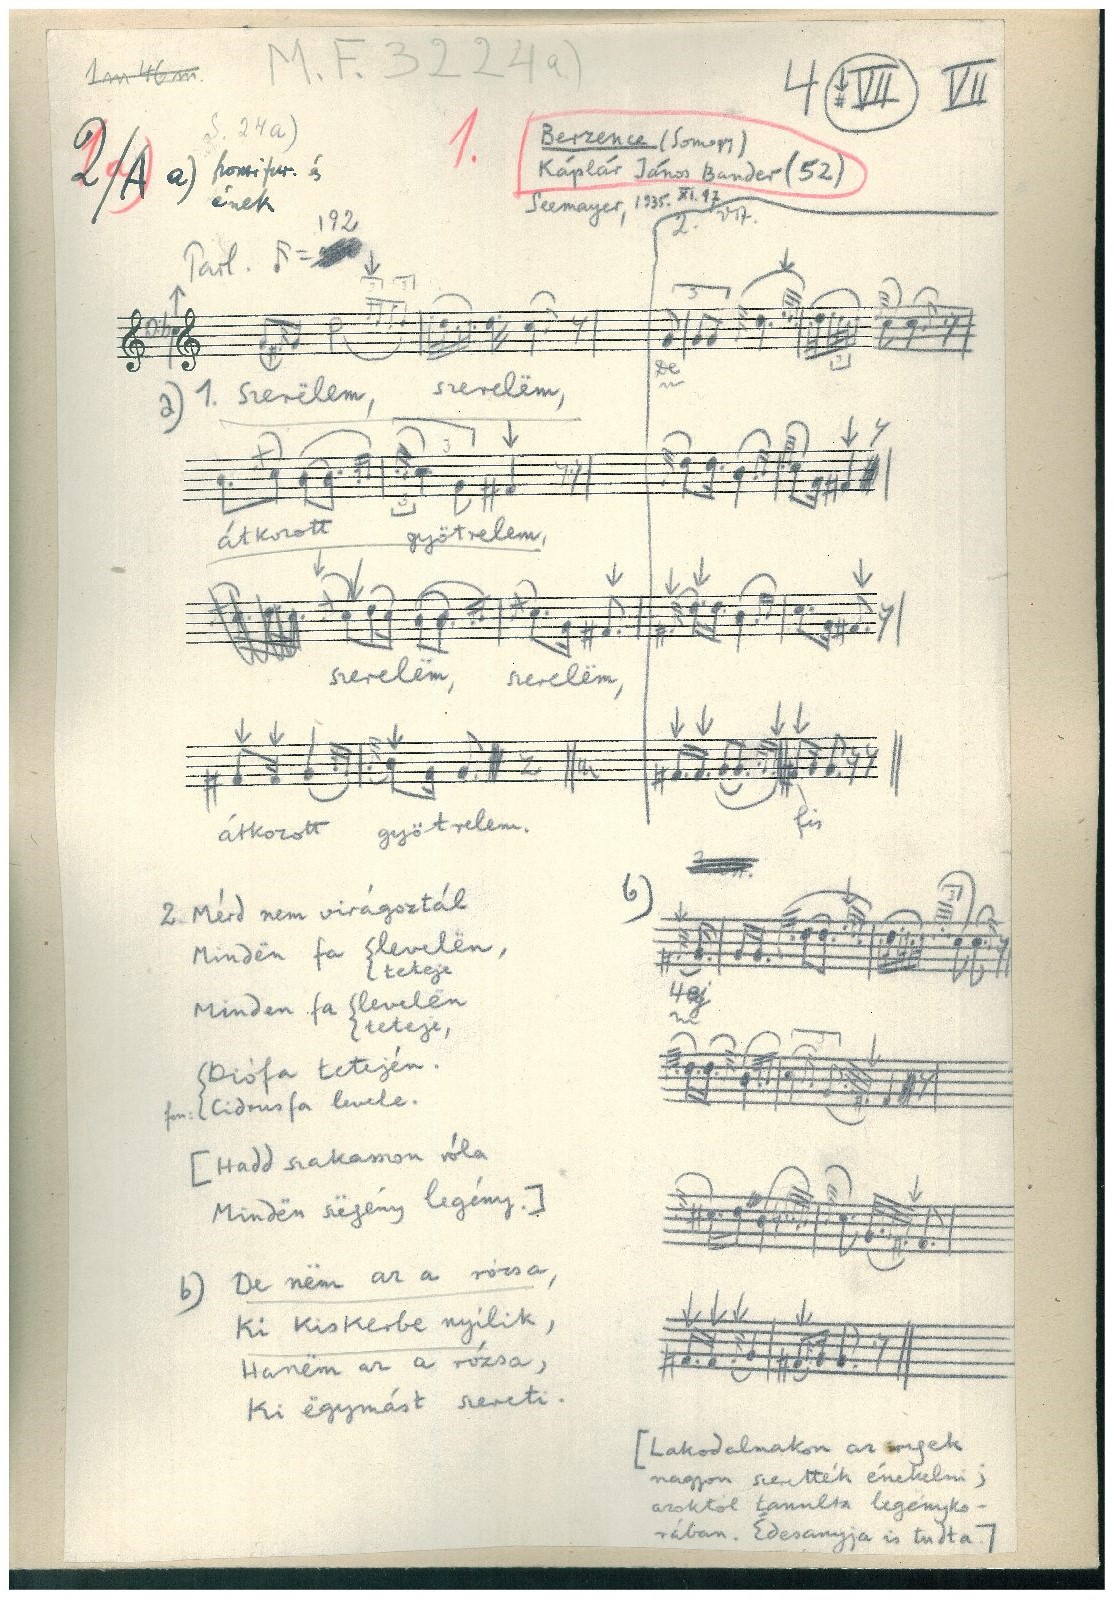 1m 46m.
M.F. 3224a)
4 VII VII
2/A a)
S. 24a)
ének
1.
Berzence (Somogy)
Káplár János Bander (52)
Seemayer, 1935. XI. 17.
2. vsz.
Parl. ♪ = 192
De
a) 1. Szerelëm, szerelëm,
átkozott gyötrelem,
szerelëm, szerelëm,
átkozott gyötrelem.
fis
2. Mérd nem virágoztál
Mindën fa {levelën,
{teteje
Minden fa {levelén
{teteje,
{Diófa tetején.
fon: {Cidrusfa levele.
[Hadd szakasson róla
Mindën szëgény legény.]
b) De nëm az a rózsa,
Ki kiskerbe nyílik,
Hanëm az a rózsa,
Ki ëgymást szereti.
b)
[Lakodalmakon az öregek
nagyon szerették énekelni;
azoktól tanulta legényko-
rában. Édesanyja is tudta.]